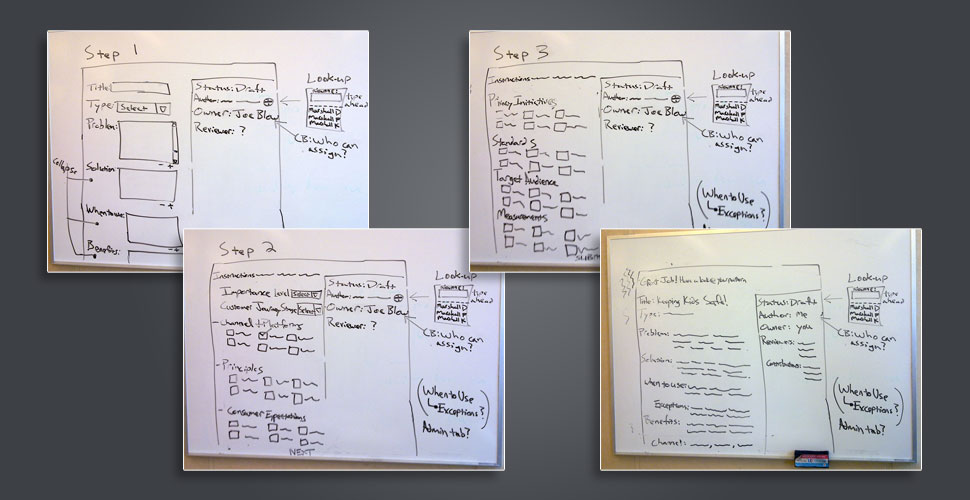 Step 1
Title:
Type: Select
Problem:
Solution
When to use:
Benefits:
Collapse
- +
- +
Status: Draft
Author:
Owner: Joe Blow
Reviewer: ?
Look-up
type ahead
Marshall D
Marshall P
Marshall K
CB: Who can
assign?
Step 2
Instructions
Importance Level Select
Customer Journey Stage Select
- Channel + Platform
- Principles
- Consumer Expectations
NEXT
Status: Draft
Author:
Owner: Joe Blow
Reviewer: ?
Look-up
Marshall D
Marshall P
Marshall K
CB: Who can
assign?
(When to Use
Exceptions?)
Admin tab?
Step 3
Instructions
Standards
Target Audience
Measurements
Status: Draft
Author:
Owner: Joe Blow
Reviewer: ?
Look-up
type
ahead
Marshall D
Marshall P
Marshall K
CB: Who can
assign?
(When to Use
Exceptions?)
Great Job! Have a look at your pattern
Title: Keeping Kids Safe!
Type:
Problem:
Solution:
When to use:
Exceptions:
Benefits:
Channel:
Status: Draft
Author: me
Owner: you
Reviewers:
Contributors:
Look-up
Marshall D
Marshall P
Marshall K
CB: Who can
assign?
(When to Use
Exceptions?)
Admin tab?